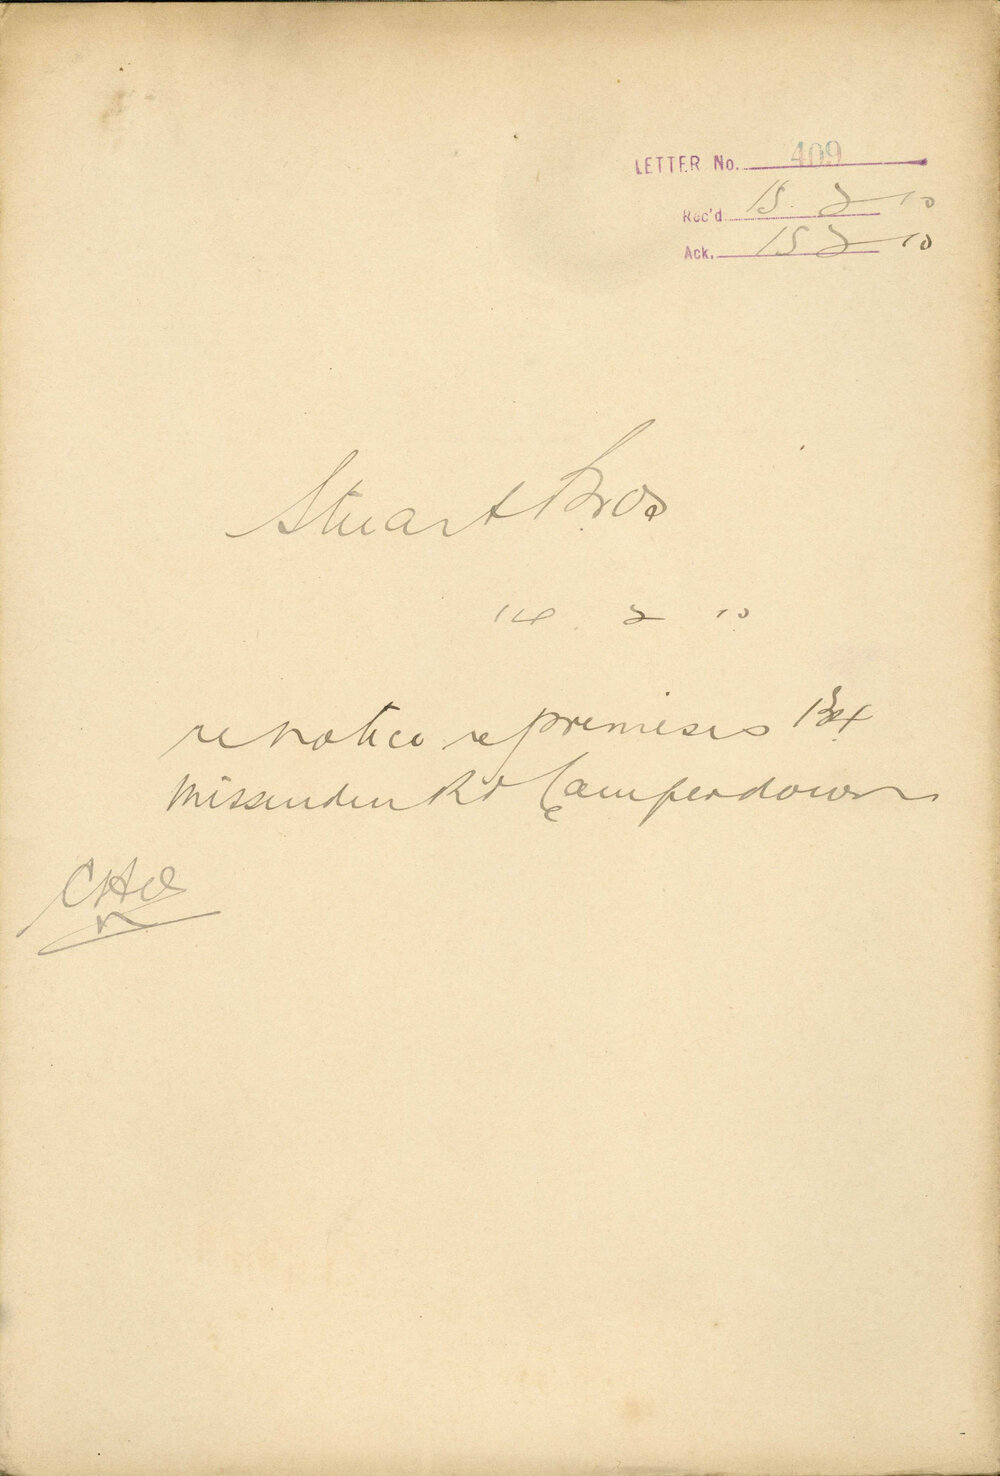 LETTER No. 409
Rec'd 15. 2 10
Ack. 15 2 10
Stuart Bros
14 2 10
re notice re premises
Missenden Rd Camperdown